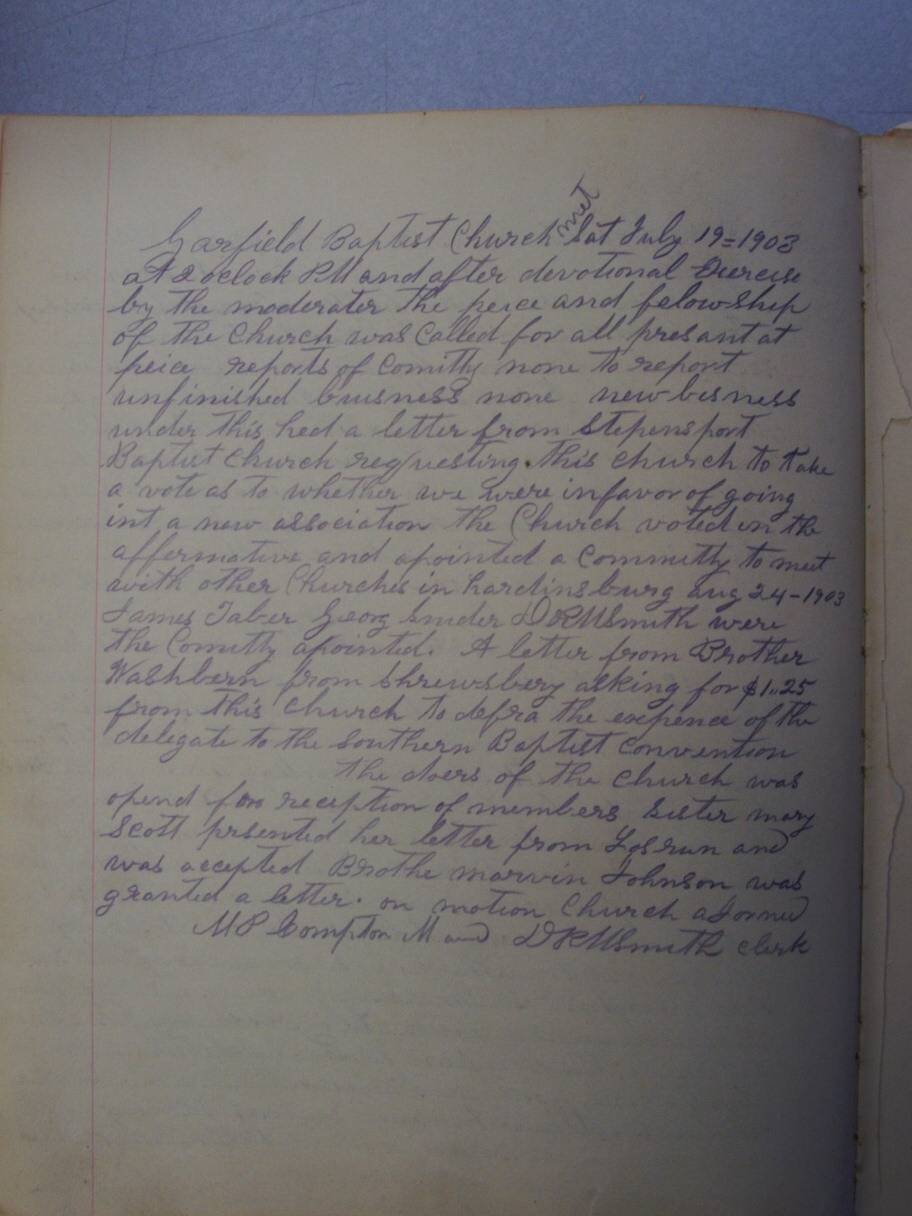 Garfield Baptist Church met Sat July 19=1903
at 2 oclock PM and after devotional Exercise
by the moderater the peice and felowship
of the Church was Called for all presant at
peice reports of Comitty none to report
unfinished buisness none new bisness
under this hed a letter from Stepensport
Baptist Church reqquesting this church to take
a vote as to whether we were in favor of going
int a new association the Church voted in the
affermative and apointed a Committy to meet
with other Churches in hardinsburg Aug 24-1903
James Taber Georg Snider DRMSmith were
the Comitty apointed. A letter from Brother
Washbern from Shrewsbery asking for $1.25
from this Church to defra the expence of the
delegate to the Southern Baptist Convention
the doers of the church was
opend for reception of members Sister mary
Scott prsented her letter from and
was accepted Brothe marvin Johnson was
granted a letter. on motion Church adorned
MP Compton M and DRMSmith clerk